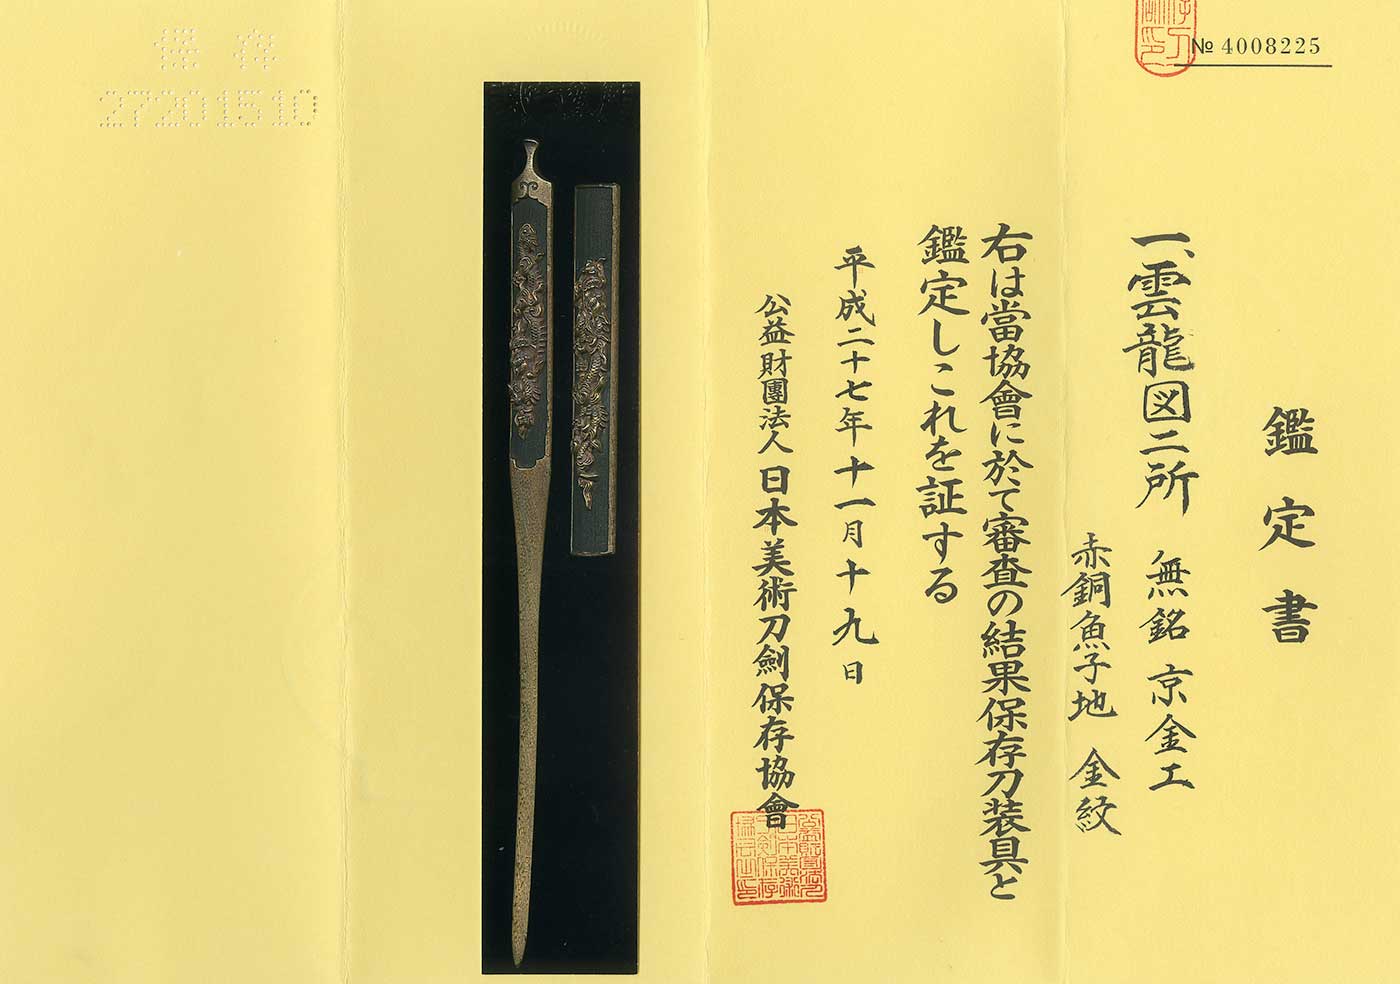 № 4008225
鑑定書
一、雲龍図二所 無銘 京金工
赤銅魚子地 金紋
右は當協會に於て審査の結果保存刀装具と
鑑定しこれを証する
平成二十七年十一月十九日
公益財團法人 日本美術刀劍保存協會
保存
27201510